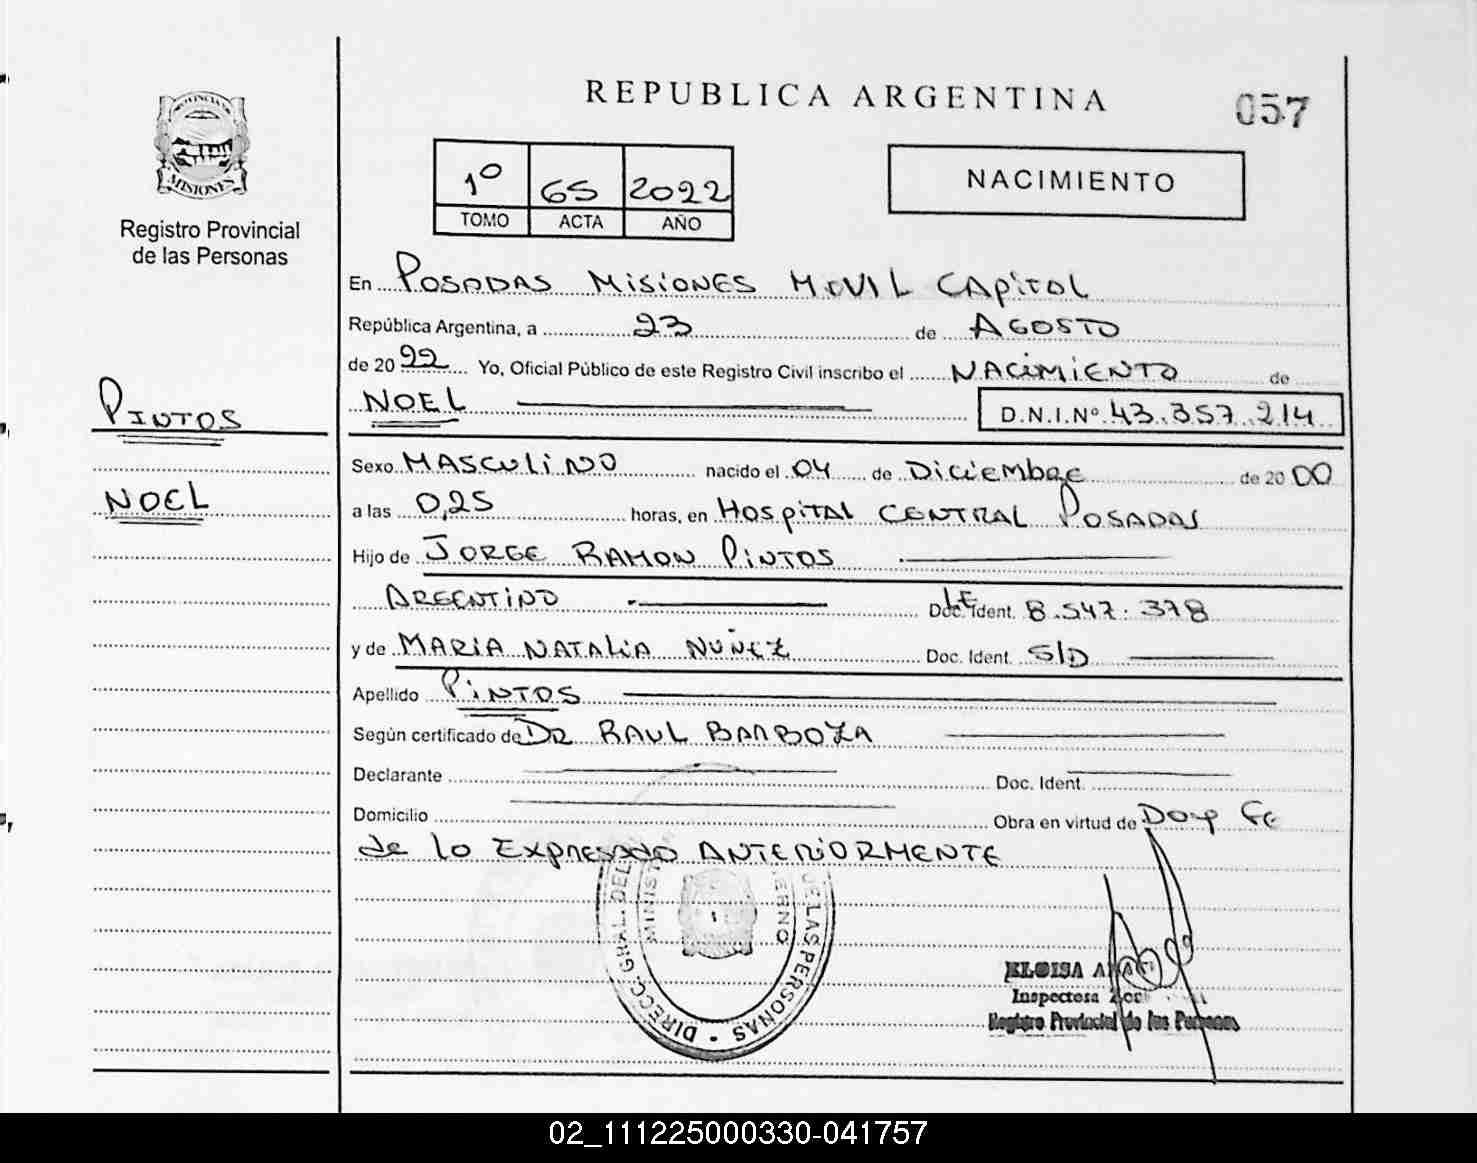 PROVINCIA DE
MISIONES
Registro Provincial
de las Personas
PINTOS
NOEL
REPUBLICA ARGENTINA
057
1º 65 2022
TOMO ACTA AÑO
NACIMIENTO
En POSADAS MISIONES MOVIL CAPITAL
República Argentina, a 23 de AGOSTO
de 2022 Yo, Oficial Público de este Registro Civil inscribo el NACIMIENTO de
NOEL D.N.I.Nº 43.357.214
Sexo MASCULINO nacido el 04 de DICIEMBRE de 2000
a las 0,25 horas, en HOSPITAL CENTRAL POSADAS
Hijo de JORGE RAMON PINTOS
ARGENTINO Doc. Ident. LE 8.547.378
y de MARIA NATALIA NUÑEZ Doc. Ident. S/D
Apellido PINTOS
Según certificado de DR RAUL BARBOZA
Declarante Doc. Ident.
Domicilio Obra en virtud de Doy Fe
de lo EXPRESADO ANTERIORMENTE
DIRECC. GRAL. DEL DE LAS PERSONAS
MINIST
ELOISA
Inspectora
Registro Provincial de las Personas
02_111225000330-041757